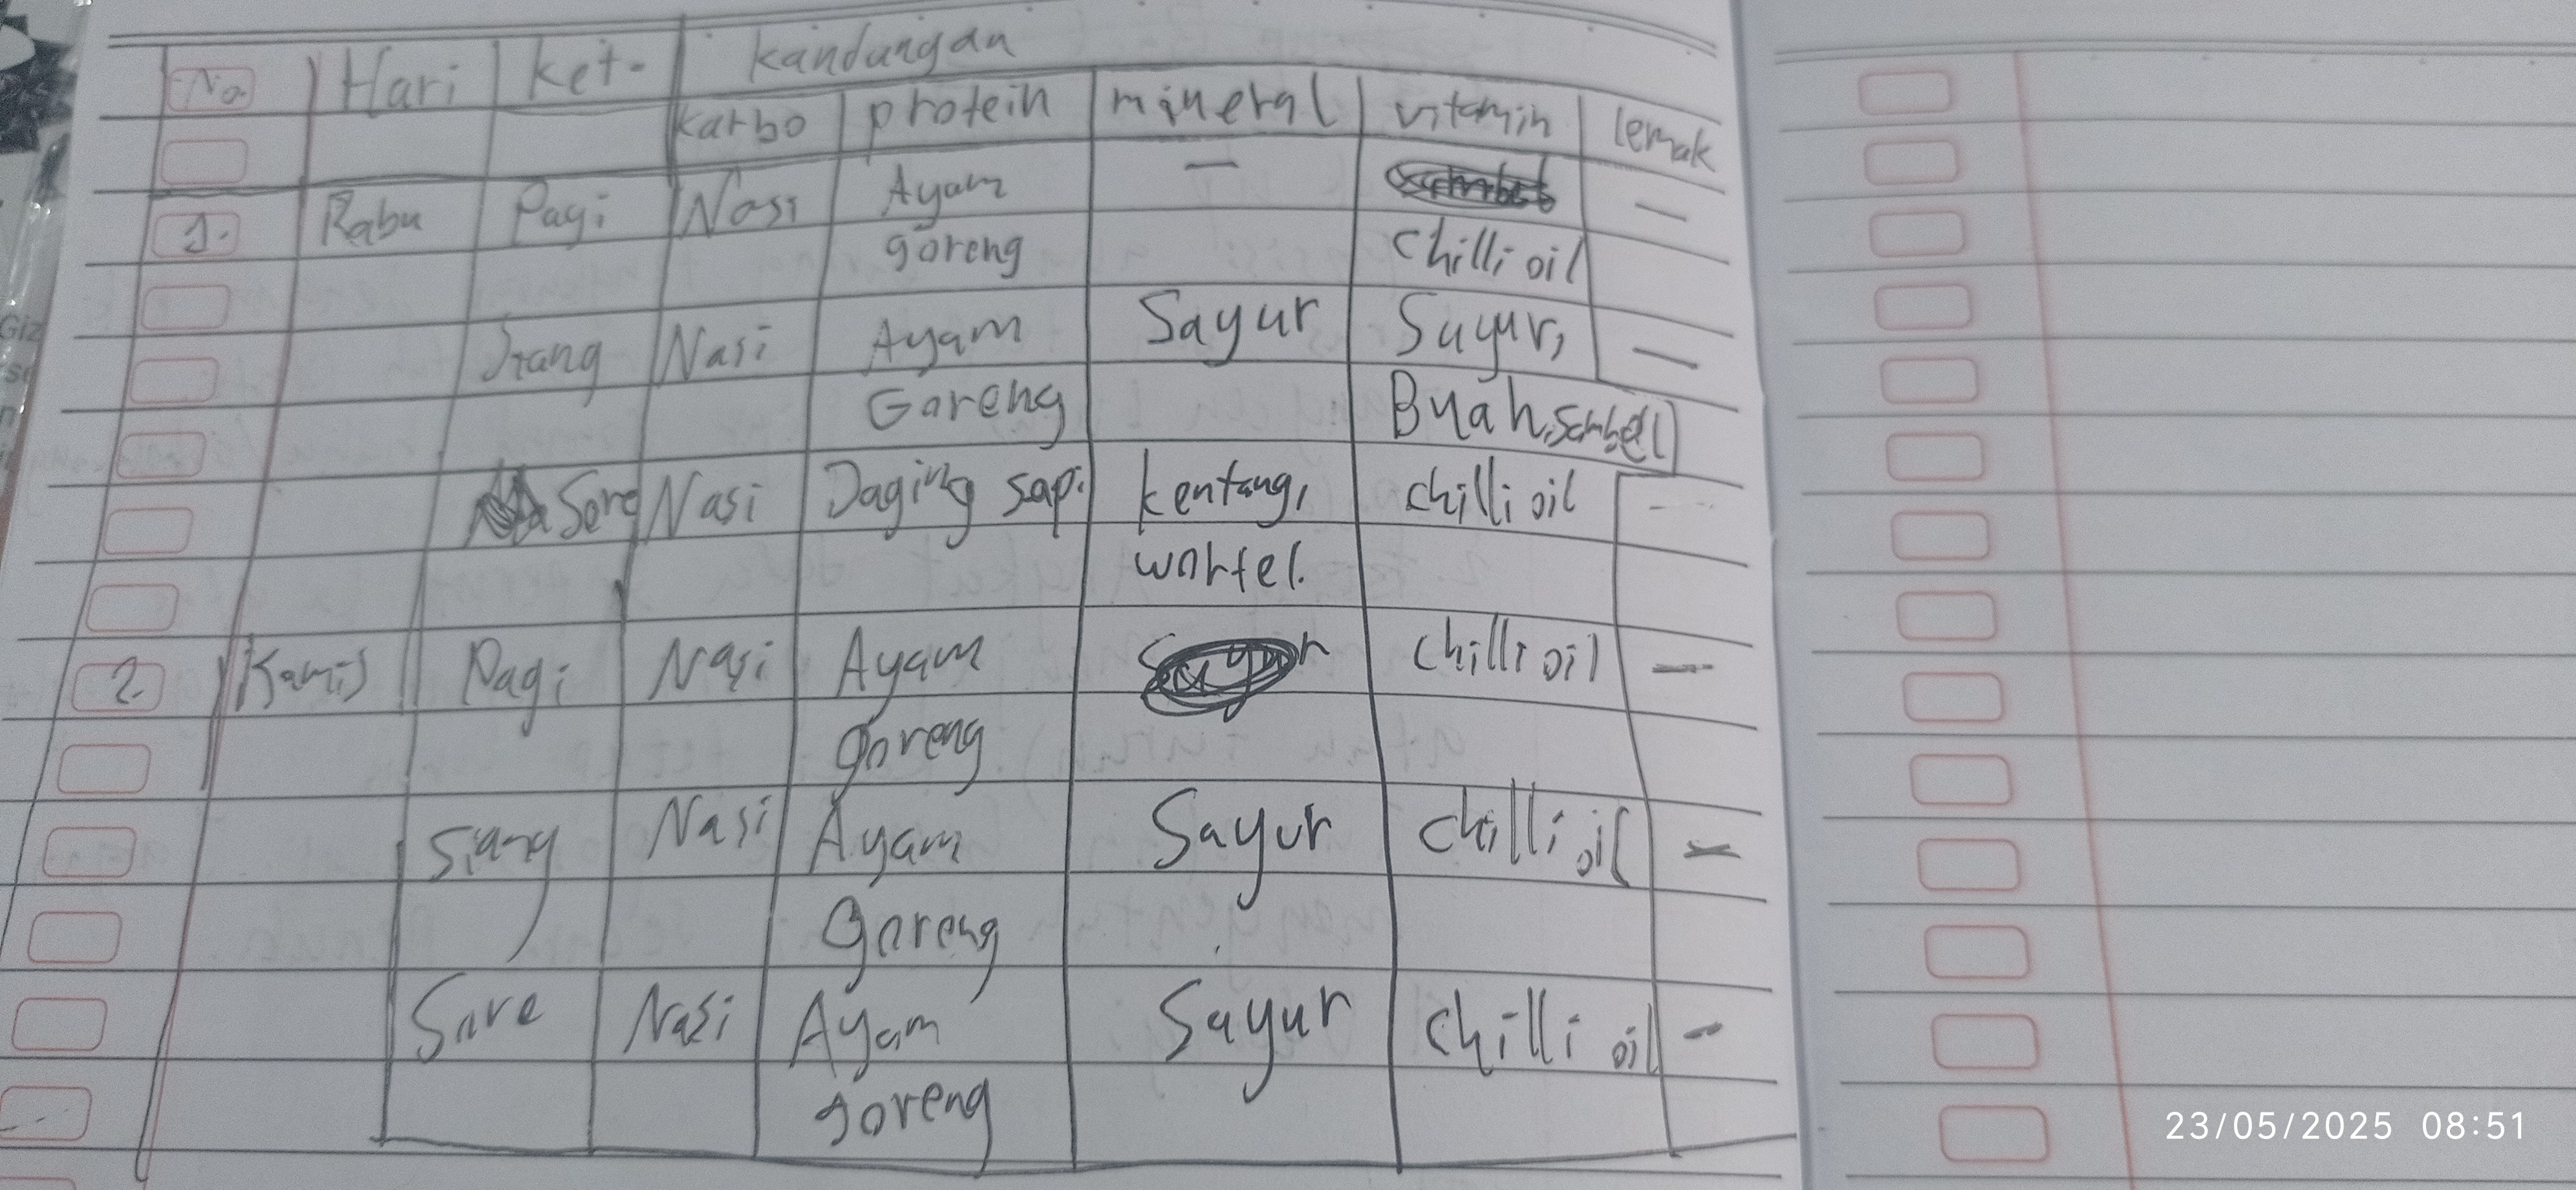 No. Hari ket. kandungan
karbo protein mineral vitamin lemak
1. Rabu Pagi Nasi Ayam — —
goreng chilli oil
Siang Nasi Ayam Sayur Sayur, —
Goreng Buah, sambel
Sore Nasi Daging sapi kentang, chilli oil -
wortel.
2. Kamis Pagi Nasi Ayam chilli oil —
goreng
Siang Nasi Ayam Sayur chilli oil —
Goreng
Sore Nasi Ayam Sayur chilli oil -
goreng
23/05/2025 08:51